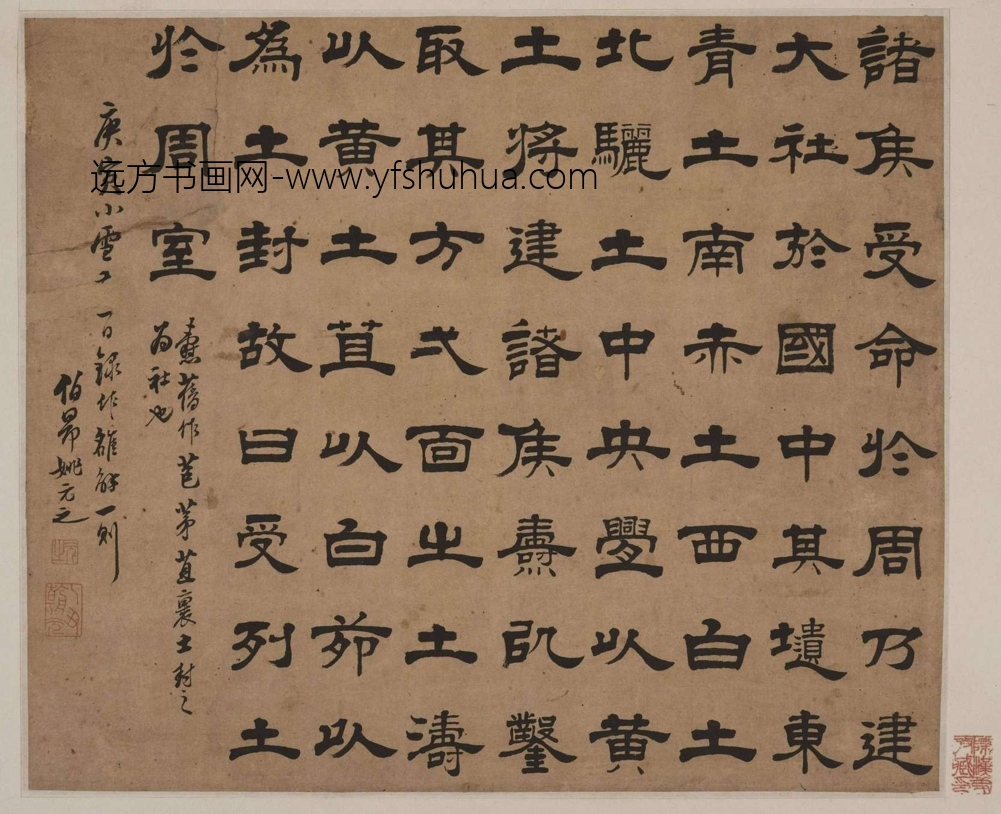 諸侯受命於周乃建
大社於國中其壝東
青土南赤土西白土
北驪土中央舋以黄
土將建諸侯燾鑿
取其方弌面之土濤
以黄土苴以白茆以
為土封故曰受列土
於周室
燾舊作苞茅苴裹土封之
為社也
庚寅小雪十一日錄作雒解一則
伯昂姚元之
远方书画网-www.yfshuhua.com